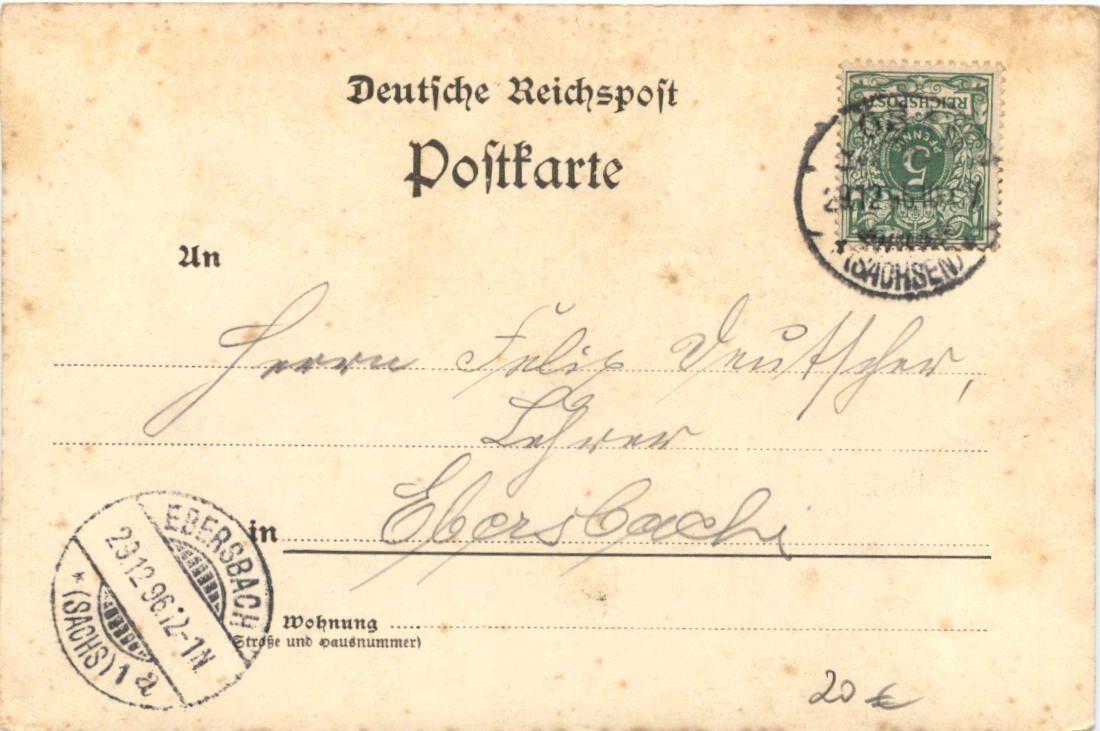 Deutsche Reichspost
Postkarte
REICHSPOST
5
PFENNIG
29.12 96
(SACHSEN)
An
Herrn Felix Deutscher,
Lehrer
in Ebersbach
EBERSBACH
29.12.96.12-1N
* (SACHS) 1 a
Wohnung
(Straße und Hausnummer)
20 €